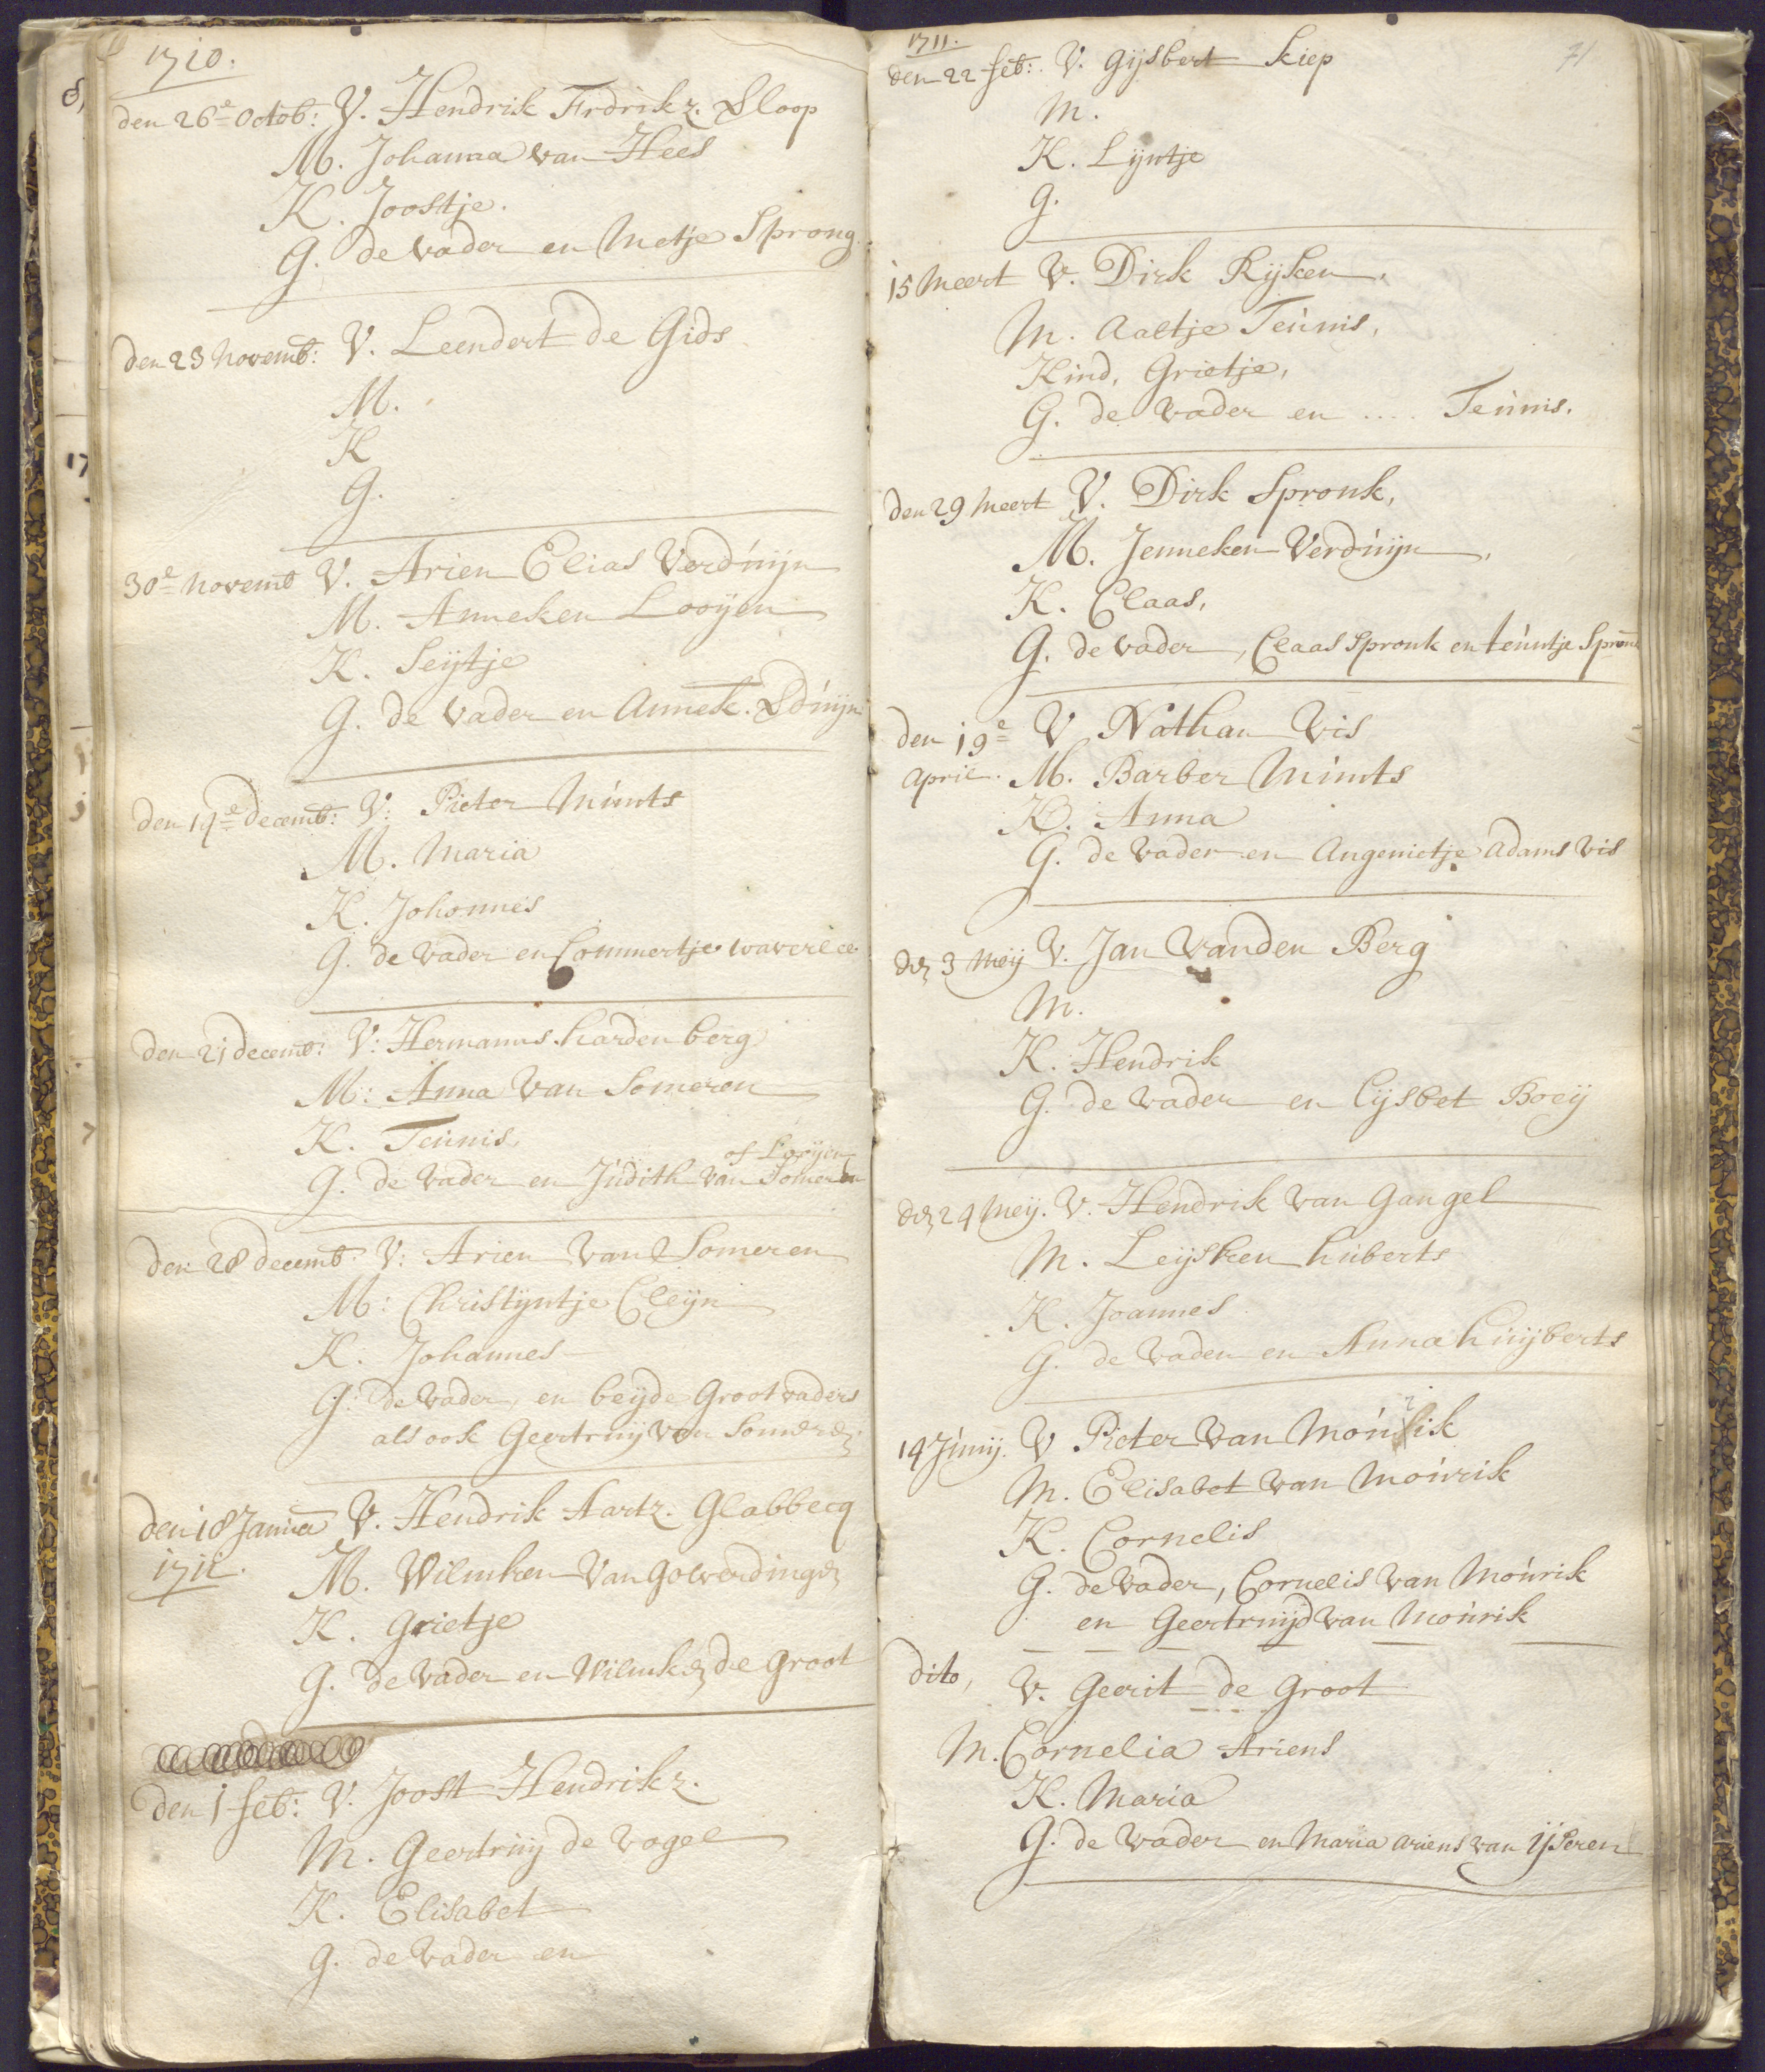 1710.
den 26e Octob: V. Hendrik Frdrikz. Sloop
M. Johanna van Hees
K. Joostje.
G. de vader en Metje Sprong.
den 23 Novemb: V. Leendert de Gids
M.
K
G.
30e Novemb V. Arien Elias Verduijn
M. Anneken Looijen
K. Seijtje
G. de Vader en Annek. Vduijn
den 14e Decemb: V: Pieter Munts
M. Maria
K. Johonnes
G. de vader en Commertje waverlee
den 21 decemb: V: Hermanus hardenberg
M: Anna Van Someren
K. Teunis,
of Looijen
G. de vader en Judith van Someren
den 28 decemb: V: Arien Van Someren
M: Christijntje Cleijn
K. Johannes
G: de vader, en beijde Grootvaders
als ook Geertruij van Someren
den 18 Janua V. Hendrik Aartz. Glabbecq
1711. M. Wilmken Van Golverdingen
K. Grietje
G. de Vader en Wilmken de Groot
den 1 feb: V. Joost Hendrikz.
M. Geertruij de vogel
K. Elisabet
G. de vader en
1711. 71
den 22 feb: V. Gijsbert Kiep
M.
K. Lijntje
G.
15 Meert V. Dirk Rijken,
M. Aaltje Teunis,
Kind, Grietje,
G. de vader en .... Teunis.
den 29 Meert V. Dirk Spronk,
M. Jenneken Verduijn,
K. Claas,
G. de vader, Claas Spronk en teuntje Spron
den 19e V Nathan Vis
April. M. Barber Munts
K. Anna
G. de vader en Angenietje Adams Vis
den 3 Meij V. Jan Vanden Berg
M.
K. Hendrik
G. de vader en Lijsbet Boeij
den 24 Meij. V. Hendrik van Gangel
M. Leijsken huberts
K. Joannes
G. de vader en Anna huijberts
14 Junij. V Pieter van Mourik
M. Elisabet van Mourik
K. Cornelis
G. de vader, Cornelis van Mourik
en Geertruijd van Mourik
dito, V. Gerrit de Groot
M. Cornelia Ariens
K. Maria
G. de vader en Maria Ariens van IJseren